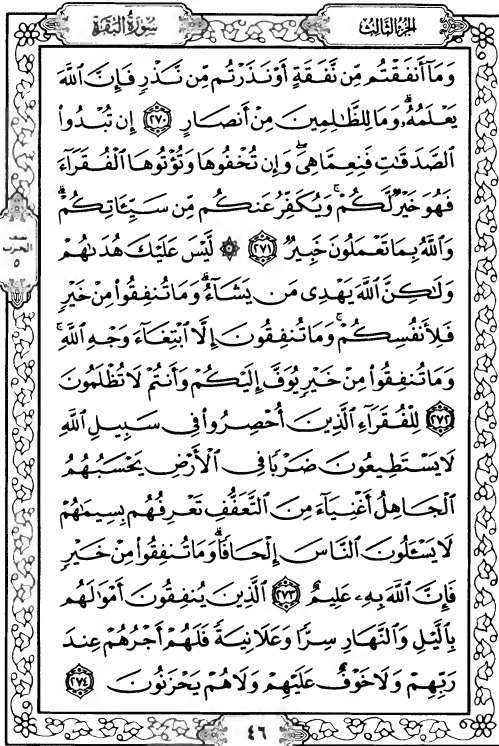 سُورَةُ البَقَرَةِ
الجُزْءُ الثَّالِثُ
وَمَآ أَنفَقْتُم مِّن نَّفَقَةٍ أَوْ نَذَرْتُم مِّن نَّذْرٍ فَإِنَّ ٱللَّهَ
يَعْلَمُهُۥ ۗ وَمَا لِلظَّٰلِمِينَ مِنْ أَنصَارٍ ٢٧٠ إِن تُبْدُوا۟
ٱلصَّدَقَٰتِ فَنِعِمَّا هِىَ ۖ وَإِن تُخْفُوهَا وَتُؤْتُوهَا ٱلْفُقَرَآءَ
فَهُوَ خَيْرٌ لَّكُمْ ۚ وَيُكَفِّرُ عَنكُم مِّن سَيِّـَٔاتِكُمْ ۗ
وَٱللَّهُ بِمَا تَعْمَلُونَ خَبِيرٌ ٢٧١ ۞ لَّيْسَ عَلَيْكَ هُدَىٰهُمْ
وَلَٰكِنَّ ٱللَّهَ يَهْدِى مَن يَشَآءُ ۗ وَمَا تُنفِقُوا۟ مِنْ خَيْرٍ
فَلِأَنفُسِكُمْ ۚ وَمَا تُنفِقُونَ إِلَّا ٱبْتِغَآءَ وَجْهِ ٱللَّهِ ۚ
وَمَا تُنفِقُوا۟ مِنْ خَيْرٍ يُوَفَّ إِلَيْكُمْ وَأَنتُمْ لَا تُظْلَمُونَ
٢٧٢ لِلْفُقَرَآءِ ٱلَّذِينَ أُحْصِرُوا۟ فِى سَبِيلِ ٱللَّهِ
لَا يَسْتَطِيعُونَ ضَرْبًا فِى ٱلْأَرْضِ يَحْسَبُهُمُ
ٱلْجَاهِلُ أَغْنِيَآءَ مِنَ ٱلتَّعَفُّفِ تَعْرِفُهُم بِسِيمَٰهُمْ
لَا يَسْـَٔلُونَ ٱلنَّاسَ إِلْحَافًا ۗ وَمَا تُنفِقُوا۟ مِنْ خَيْرٍ
فَإِنَّ ٱللَّهَ بِهِۦ عَلِيمٌ ٢٧٣ ٱلَّذِينَ يُنفِقُونَ أَمْوَٰلَهُم
بِٱلَّيْلِ وَٱلنَّهَارِ سِرًّا وَعَلَانِيَةً فَلَهُمْ أَجْرُهُمْ عِندَ
رَبِّهِمْ وَلَا خَوْفٌ عَلَيْهِمْ وَلَا هُمْ يَحْزَنُونَ ٢٧٤
الحزب
٥
٤٦